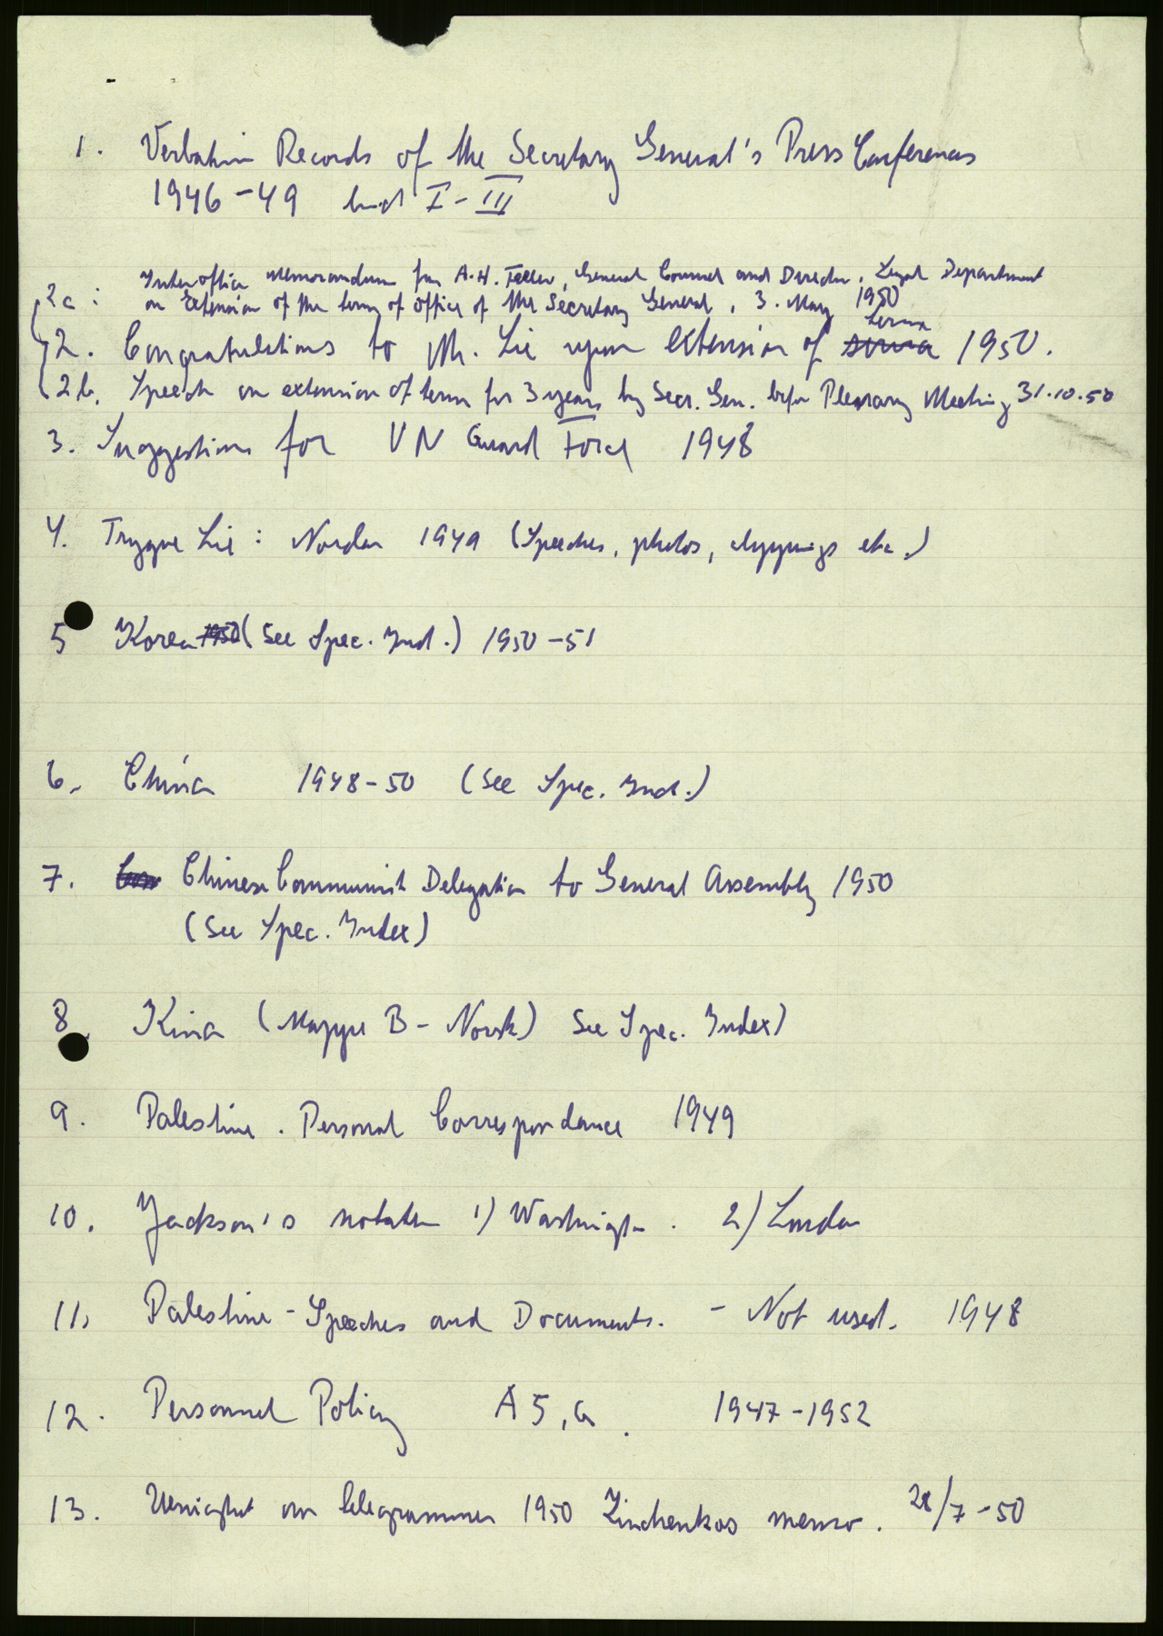 1. Verbatim Records of the Secretary General's Press Conferences
1946-49 bind I-III
2a: Interoffice memorandum from A.H. Feller, General Counsel and Director, Legal Department
on Extension of the term of office of the Secretary General, 3. May 1950
2. Congratulations to Mr. Lie upon extension of term 1950.
2b. Speech on extension of term for 3 years by Secr. Gen. before Plenary Meeting 31.10.50
3. Suggestions for UN Guard Force 1948
4. Trygve Lie: Norden 1949 (Speeches, photos, clippings etc.)
5 Korea 1950 (See Spec. Ind.) 1950-51
6. China 1948-50 (See Spec. Ind.)
7. Chinese Communist Delegation to General Assembly 1950
(See Spec. Index)
8. Kina (Mappe B - Norsk) See Spec. Index)
9. Palestine. Personal Correspondance 1949
10. Jackson's notater 1) Washington. 2) London
11, Palestine - Speeches and Documents. - Not used. 1948
12. Personnel Policy A 5, a. 1947-1952
13. Uenighet om telegrammer 1950 Zinchenkos memo. 28/7-50